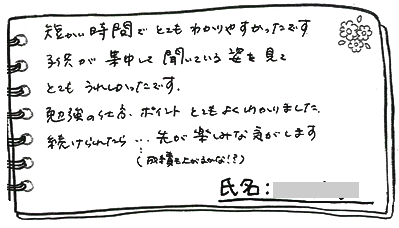 短かい時間でとてもわかりやすかったです
子供が集中して聞いている姿を見て
とてもうれしかったです。
勉強の仕方、ポイントとてもよくわかりました。
続けられたら…先が楽しみな気がします
(成績も上がるかな!?)
氏名: